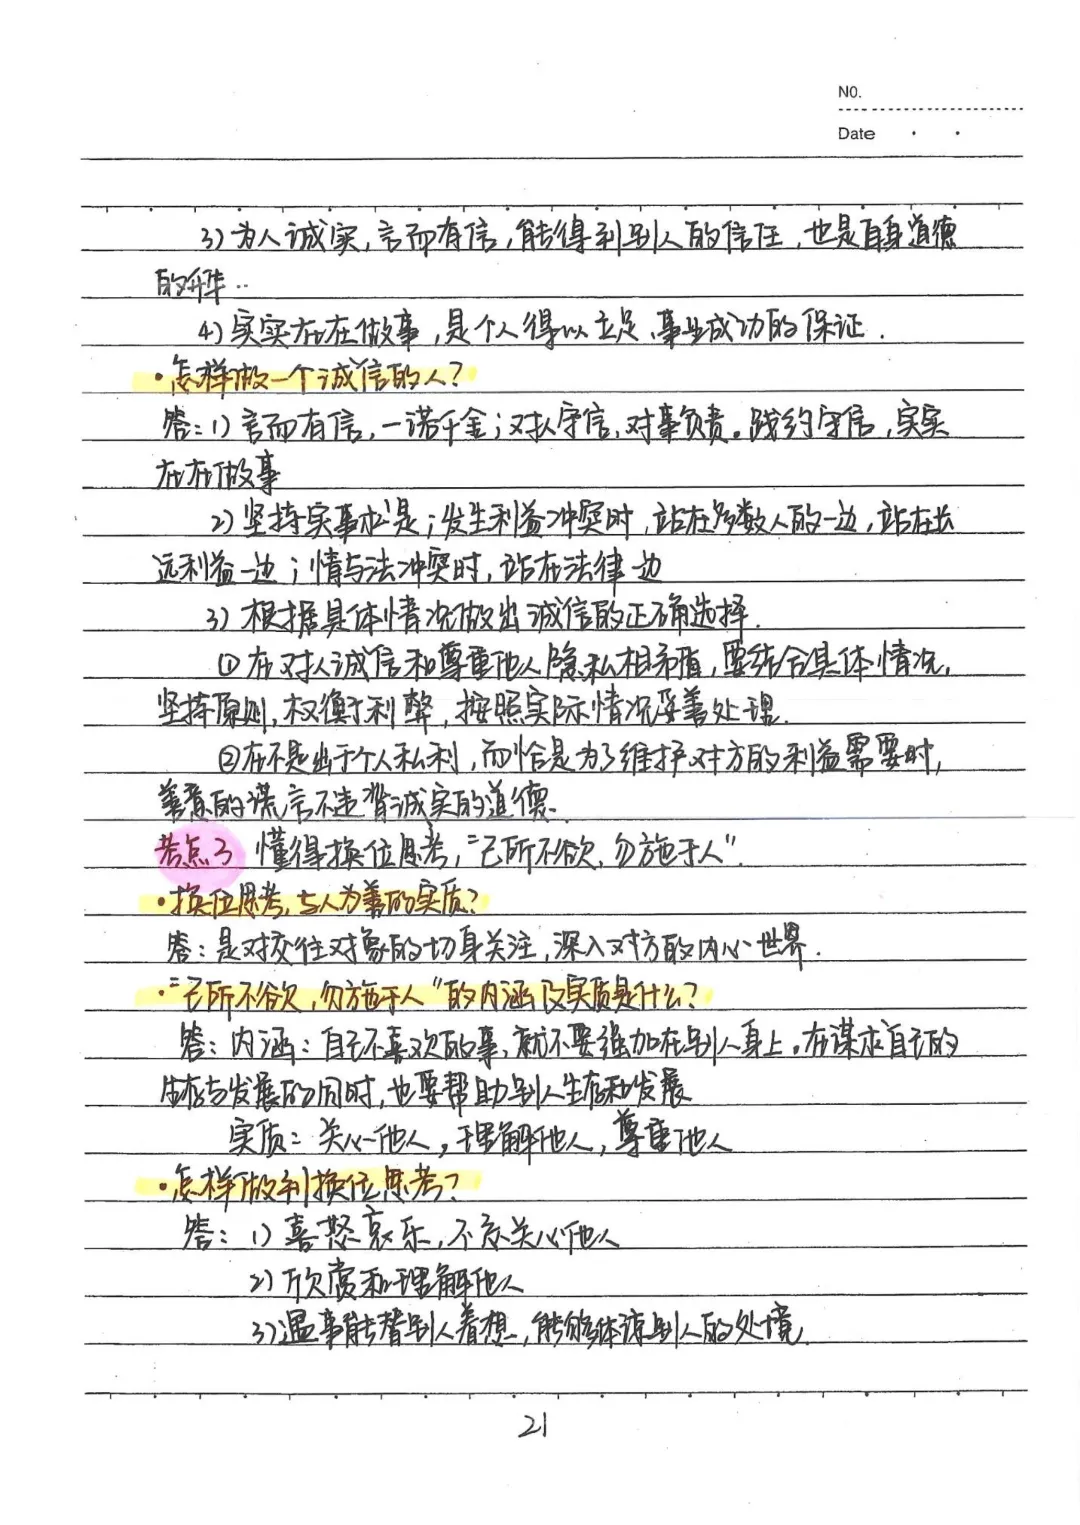 NO.
Date
3）为人诚实，言而有信，能得到别人的信任，也是自身道德
的升华..
4）实实在在做事，是个人得以立足、事业成功的保证.
·怎样做一个诚信的人？
答：1）言而有信，一诺千金；对人守信，对事负责。践约守信，实实
在在做事
2）坚持实事求是；发生利益冲突时，站在多数人的一边，站在长
远利益一边；情与法冲突时，站在法律一边
3）根据具体情况做出诚信的正确选择.
①在对人诚信和尊重他人隐私相矛盾，要结合具体情况，
坚持原则，权衡利弊，按照实际情况妥善处理.
②在不是出于个人私利，而恰是为了维护对方的利益需要时，
善意的谎言不违背诚实的道德.
考点3 懂得换位思考，“己所不欲，勿施于人”.
·换位思考，与人为善的实质？
答：是对交往对象的切身关注，深入对方的内心世界.
·“己所不欲，勿施于人”的内涵及实质是什么？
答：内涵：自己不喜欢的事，就不要强加在别人身上。在谋求自己的
生存与发展的同时，也要帮助别人生存和发展
实质：关心他人，理解他人，尊重他人
·怎样做到换位思考？
答：1）喜怒哀乐，不忘关心他人
2）欣赏和理解他人
3）遇事能替别人着想，能够体谅别人的处境.
21